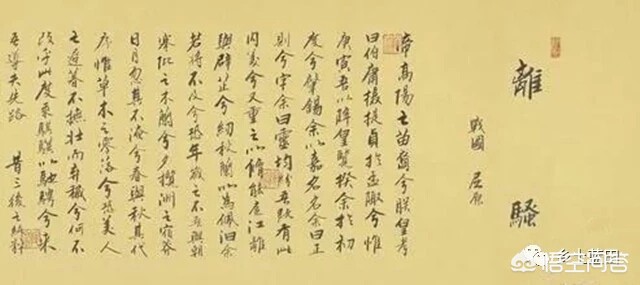 離騷
戰國 屈原
帝高陽之苗裔兮朕皇考
曰伯庸攝提貞於孟陬兮惟
庚寅吾以降皇覽揆余於初
度兮肇錫余以嘉名名余曰正
則兮字余曰靈均紛吾既有此
內美兮又重之以脩能扈江離
與辟芷兮紉秋蘭以為佩汩余
若將不及兮恐年歲之不吾與朝
搴阰之木蘭兮夕攬洲之宿莽
日月忽其不淹兮春與秋其代
序惟草木之零落兮恐美人
之遲暮不撫壯而棄穢兮何不
改乎此度乘騏驥以馳騁兮來
吾導夫先路 昔三後之純粹
乡土蓝田
悟空问答